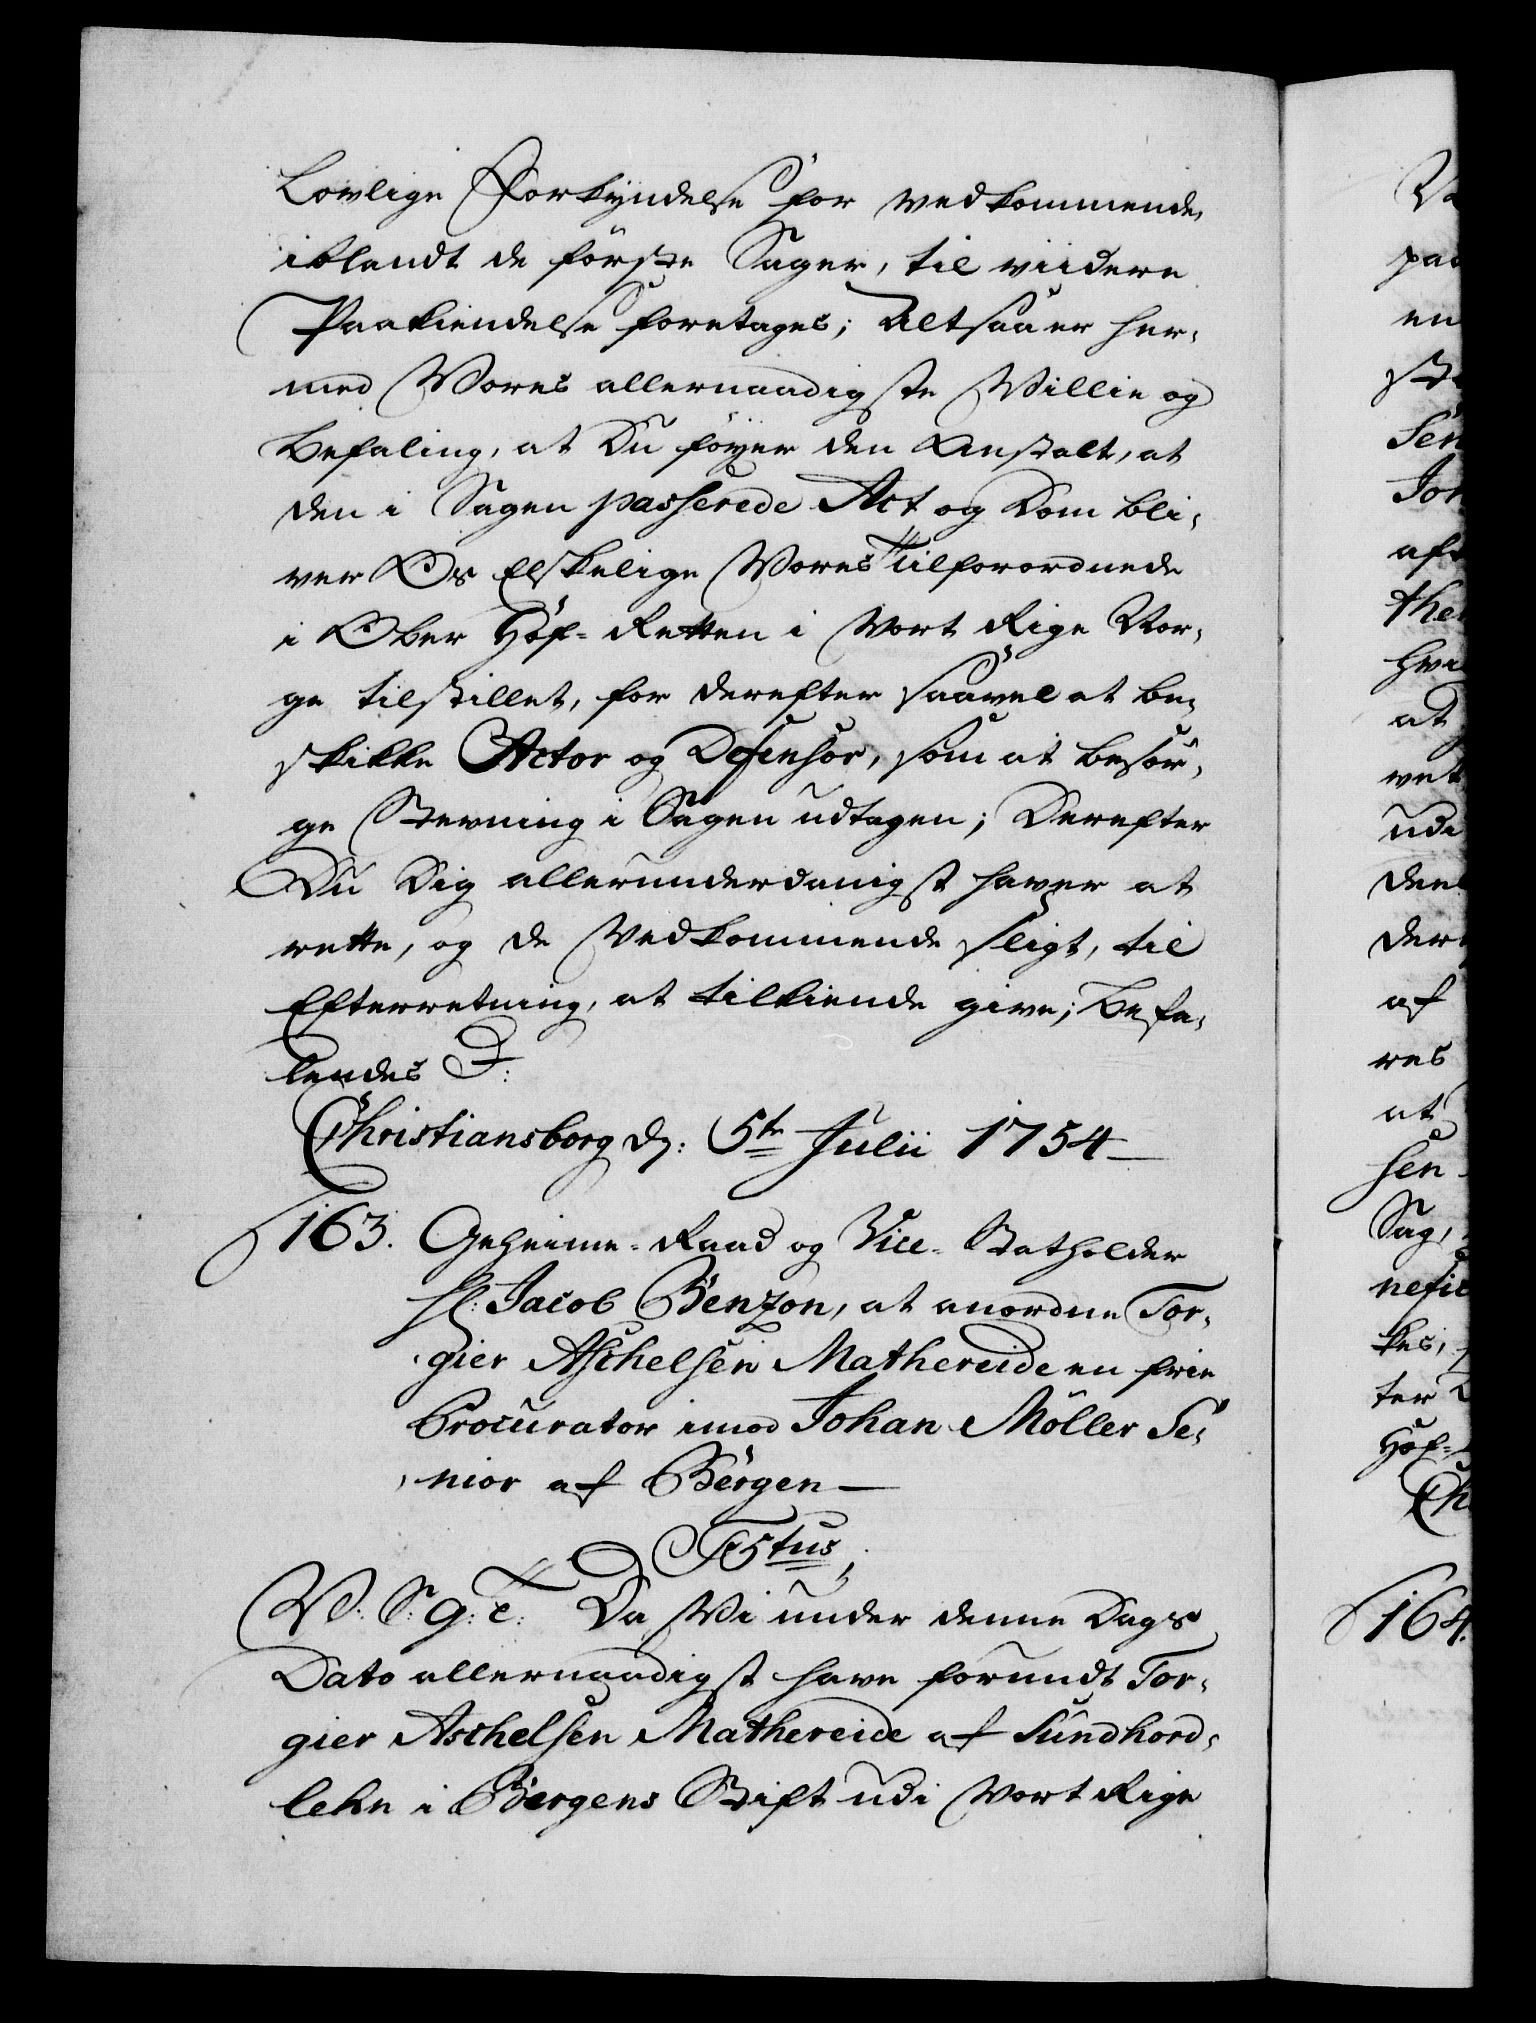 Lovlige Forkyndelse for vedkommende,
iblandt de förste Sager, til viidere
Paakiendelse foretages; Altsaa er her-
med Vores allernaadigste Villie og
Befaling, at Du föyer den Anstalt, at
den i Sagen passerede Act og Dom bli-
ver Os Elskelige Vores Tilforordnede
i Ober Hof-Retten i Vort Rige Nor-
ge tilstillet, for derefter saavel at be-
skikke Actor og Defensor, som at besör-
ge Stevning i Sagen udtagen; Derefter
Du Dig allerunderdanigst haver at
rette, og de Vedkommende sligt, til
Efterretning, at tilkiende give; Befa-
lendes D:
Christiansborg d: 5te Julii 1754
163. Geheime-Raad og Vice-Statholder
Hl: Jacob Benzon, at anordne Tor-
gier Aschelsen Mathereide en frie
Procurator imod Johan Möller Se-
nior af Bergen
Festus,
V: S: g: T: Da Vi under denne Dags
Dato allernaadigst have forundt Tor-
gier Aschelsen Mathereide af Sundhord-
lehn i Bergens Stift udi Vort Rige
164.